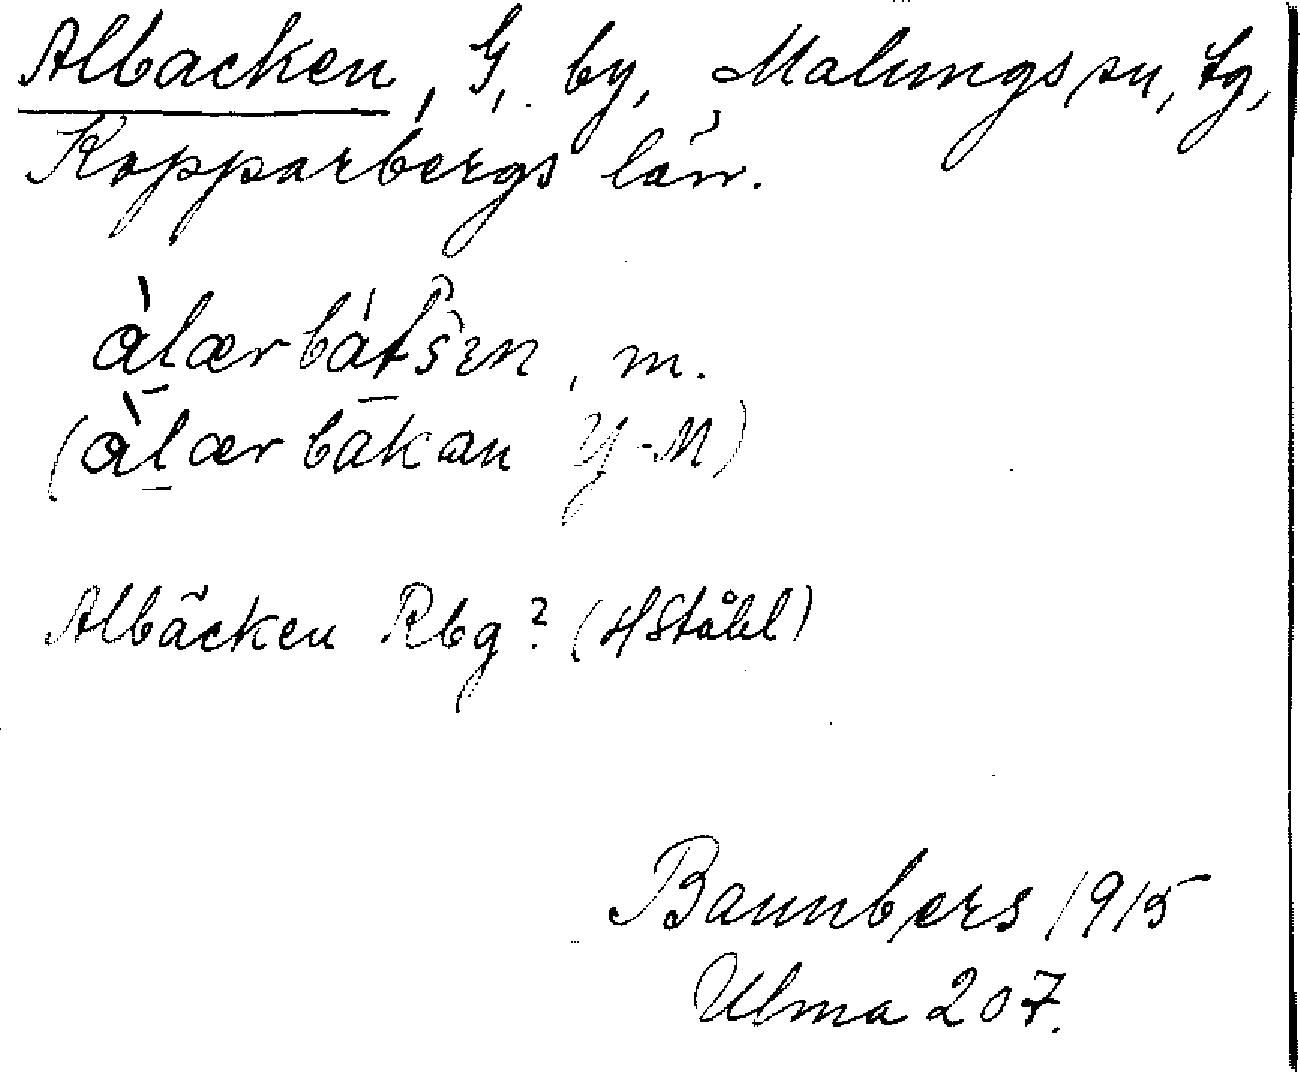 Albacken, G, by, Malungs sn, tg,
Kopparbergs län.
àl̠ærbát̠šen, m.
(àl̠ærbakan Y-M)
Albäcken Rbg? (HStåhl)
Bannbers 1915
Ulma 207.